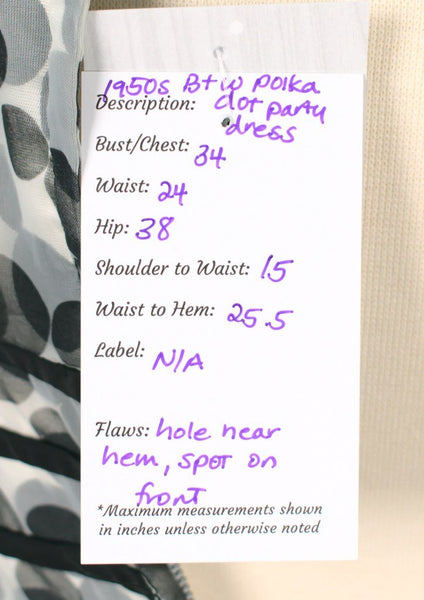 1950s B+W Polka
Description: dot party
dress
Bust/Chest: 34
Waist: 24
Hip: 38
Shoulder to Waist: 15
Waist to Hem: 25.5
Label: N/A
Flaws: hole near
hem, spot on
front
*Maximum measurements shown
in inches unless otherwise noted